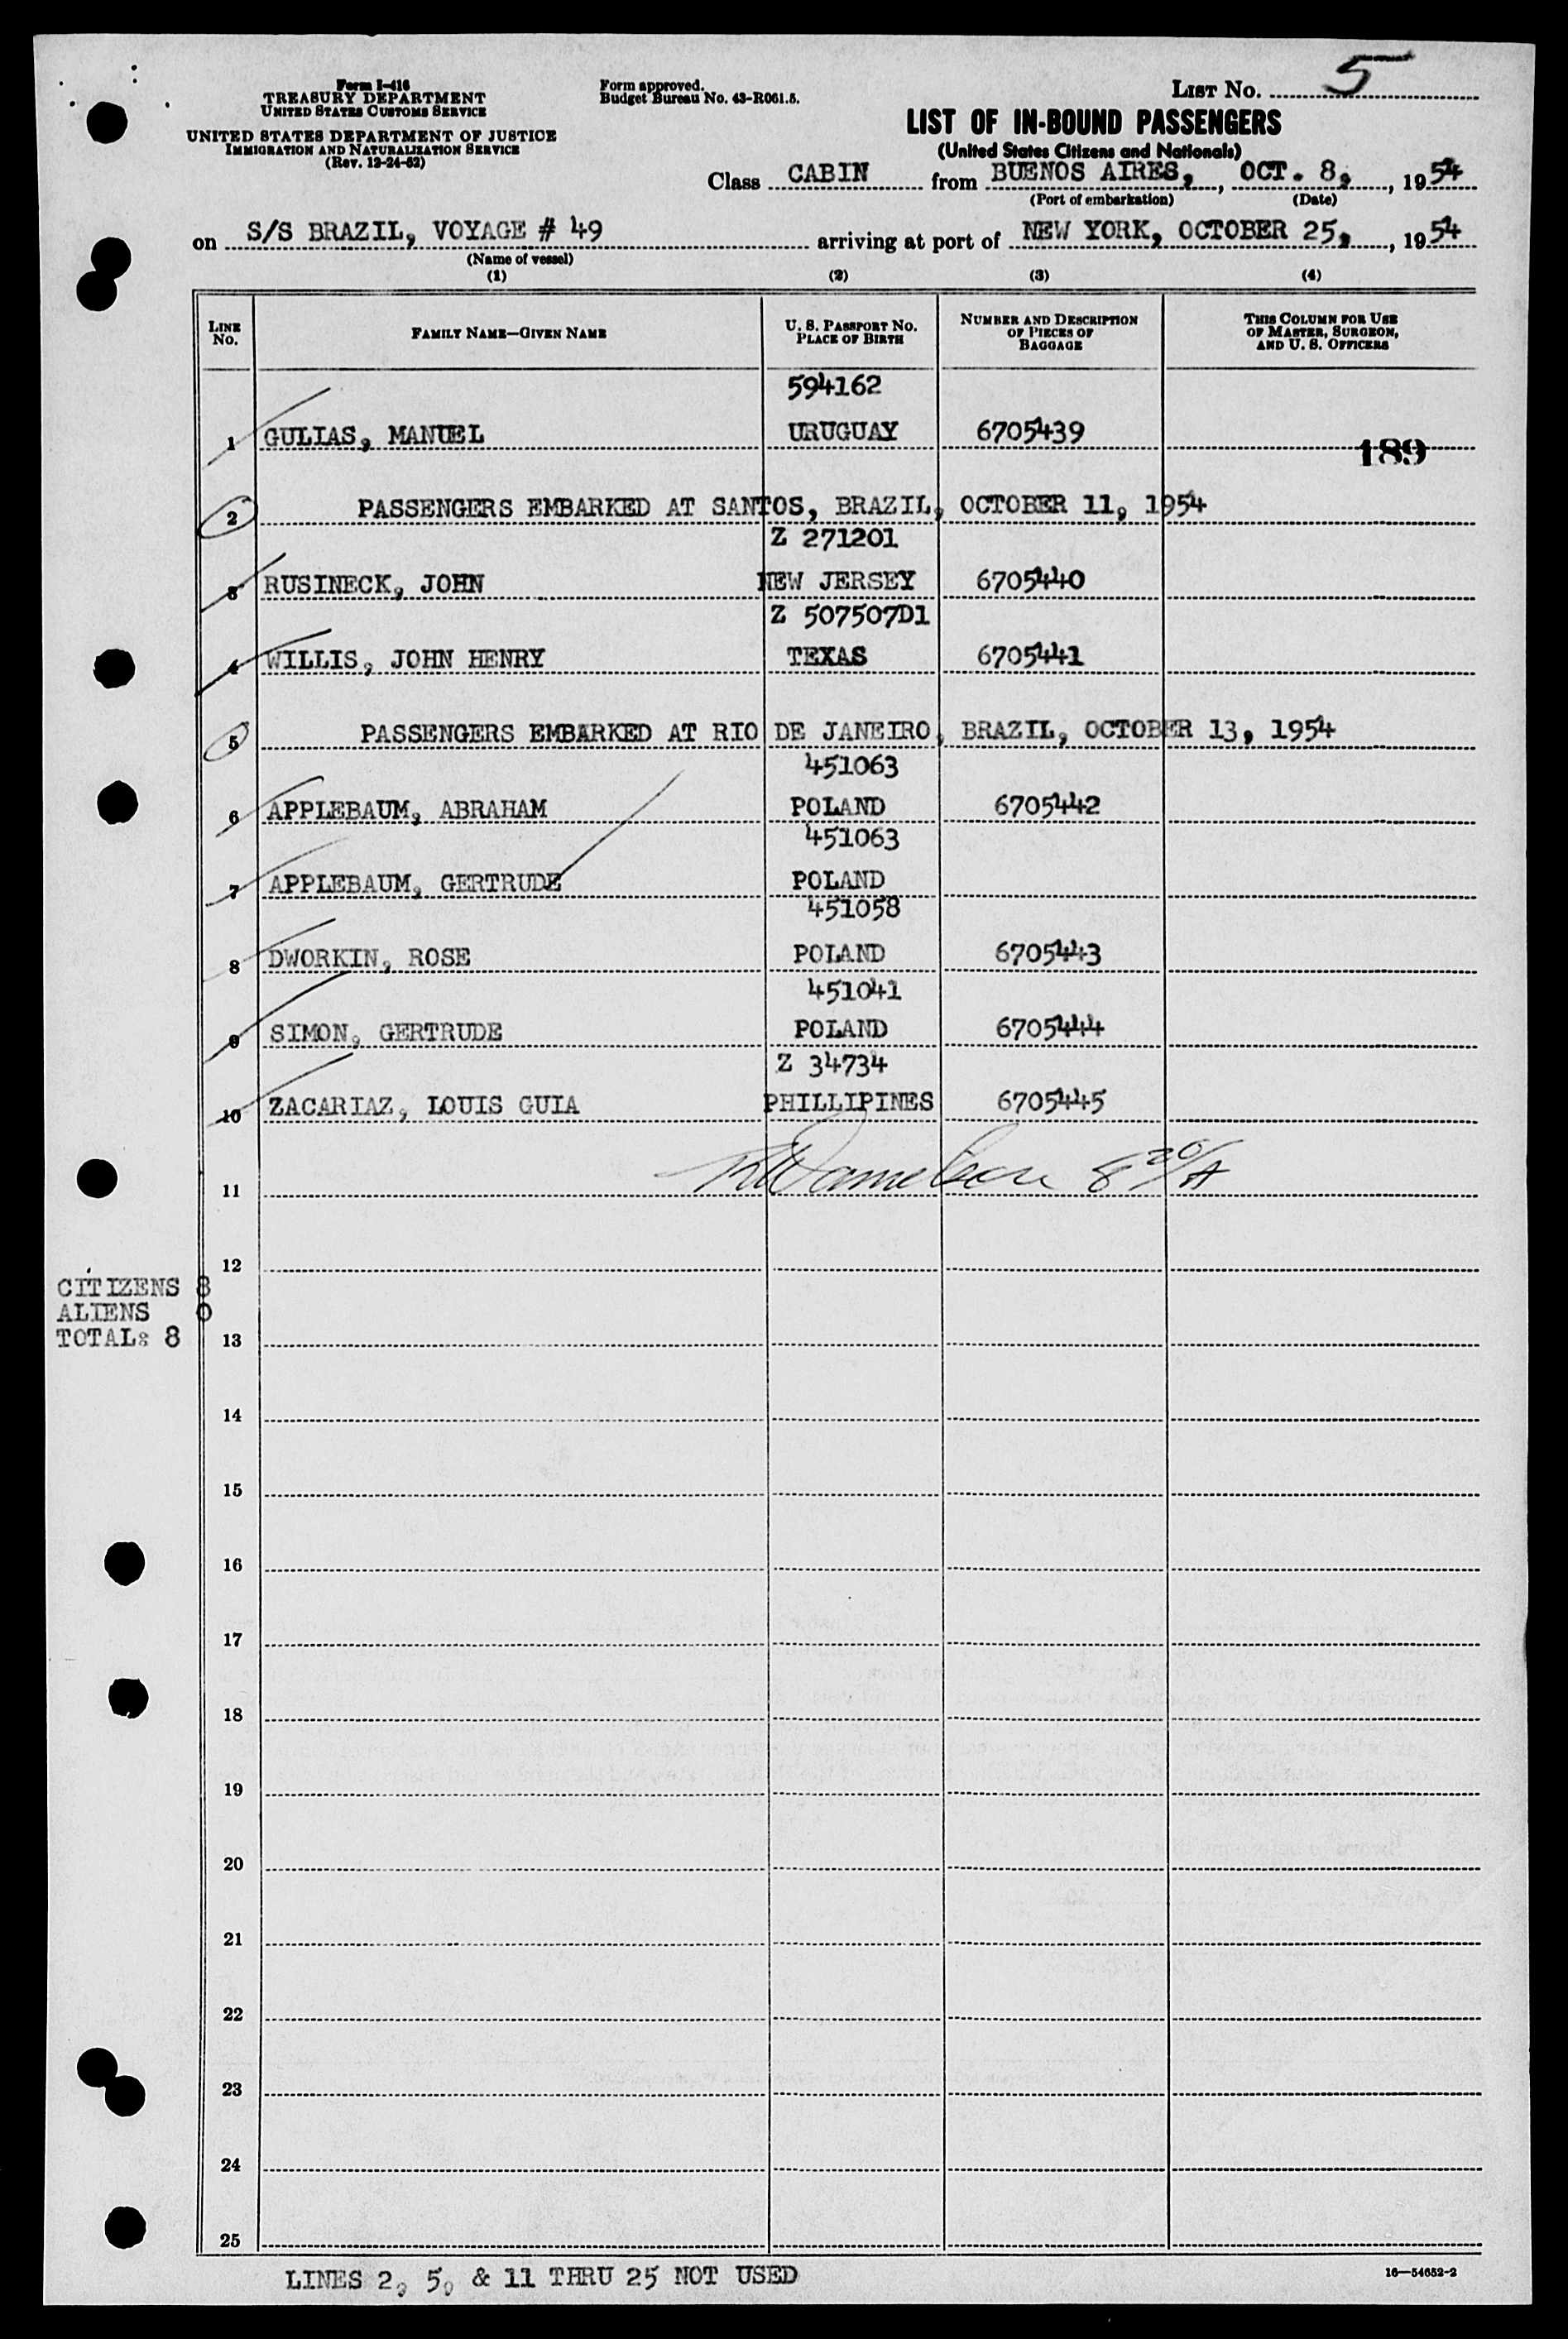 Form I-416
TREASURY DEPARTMENT
UNITED STATES CUSTOMS SERVICE
UNITED STATES DEPARTMENT OF JUSTICE
IMMIGRATION AND NATURALIZATION SERVICE
(Rev. 12-24-52)
Form approved.
Budget Bureau No. 43-R061.5.
LIST No. 5
LIST OF IN-BOUND PASSENGERS
(United States Citizens and Nationals)
Class CABIN from BUENOS AIRES, , OCT. 8, , 1954
(Port of embarkation) (Date)
on S/S BRAZIL, VOYAGE # 49 arriving at port of NEW YORK, OCTOBER 25, , 1954
(Name of vessel)
(1) (2) (3) (4)
LINE No. FAMILY NAME—GIVEN NAME U. S. PASSPORT No. PLACE OF BIRTH NUMBER AND DESCRIPTION OF PIECES OF BAGGAGE THIS COLUMN FOR USE OF MASTER, SURGEON, AND U. S. OFFICERS
594162
1 GULIAS, MANUEL URUGUAY 6705439
189
2 PASSENGERS EMBARKED AT SANTOS, BRAZIL, OCTOBER 11, 1954
Z 271201
3 RUSINECK, JOHN NEW JERSEY 6705440
Z 507507D1
4 WILLIS, JOHN HENRY TEXAS 6705441
5 PASSENGERS EMBARKED AT RIO DE JANEIRO, BRAZIL, OCTOBER 13, 1954
451063
6 APPLEBAUM, ABRAHAM POLAND 6705442
451063
7 APPLEBAUM, GERTRUDE POLAND
451058
8 DWORKIN, ROSE POLAND 6705443
451041
9 SIMON, GERTRUDE POLAND 6705444
Z 34734
10 ZACARIAZ, LOUIS GUIA PHILLIPINES 6705445
11
12
CITIZENS 8
ALIENS 0
TOTAL: 8
13
14
15
16
17
18
19
20
21
22
23
24
25
LINES 2, 5, & 11 THRU 25 NOT USED
16—54652-2